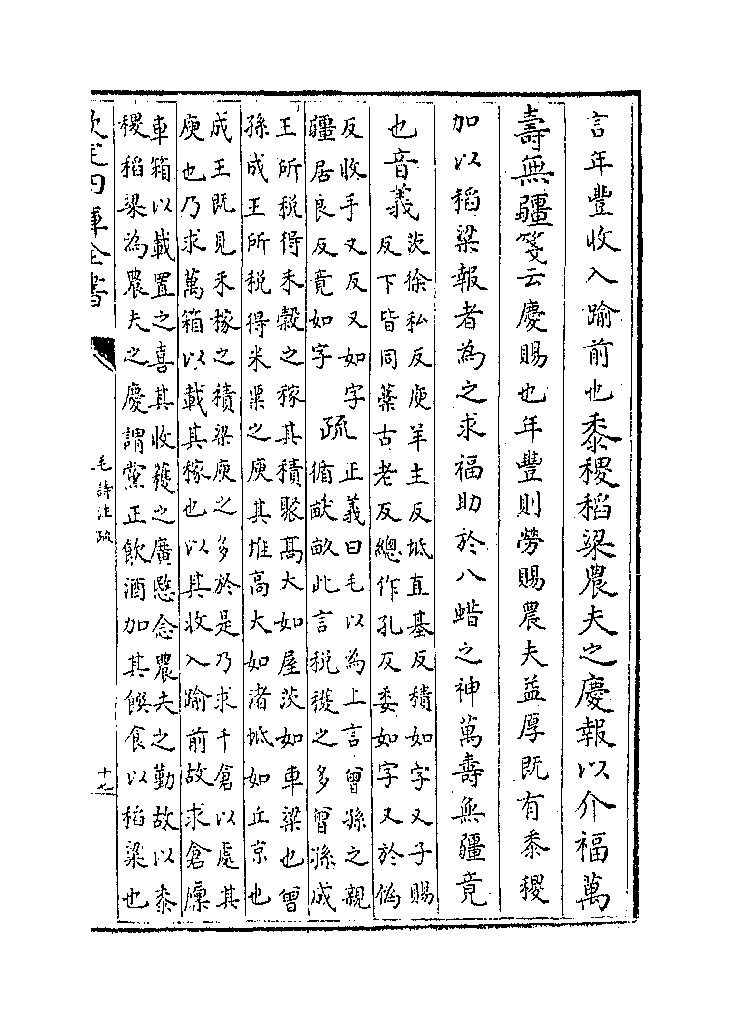 言年豐收入踰前也黍稷稻粱農夫之慶報以介福萬
壽無疆箋云慶賜也年豐則勞賜農夫益厚既有黍稷
加以稻粱報者為之求福助於八蜡之神萬壽無疆竟
也音義
茨徐私反庾羊主反坻直基反積如字又子賜
反下皆同藁古老反總作孔反委如字又於偽
反收手又反又如字
疆居良反竟如字
疏
正義曰毛以為上言曾孫之親
循畎畝此言税穫之多曾孫成
王所税得禾穀之稼其積聚高大如屋茨如車梁也曾
孫成王所税得米粟之庾其堆高大如渚坻如丘京也
成王既見禾稼之積梁庾之多於是乃求千倉以處其
庾也乃求萬箱以載其稼也以其收入踰前故求倉廩
車箱以載置之喜其收穫之廣愍念農夫之勤故以黍
稷稻粱為農夫之慶謂黨正飲酒加其饌食以稻粱也
欽定四庫全書
毛詩注疏
十七